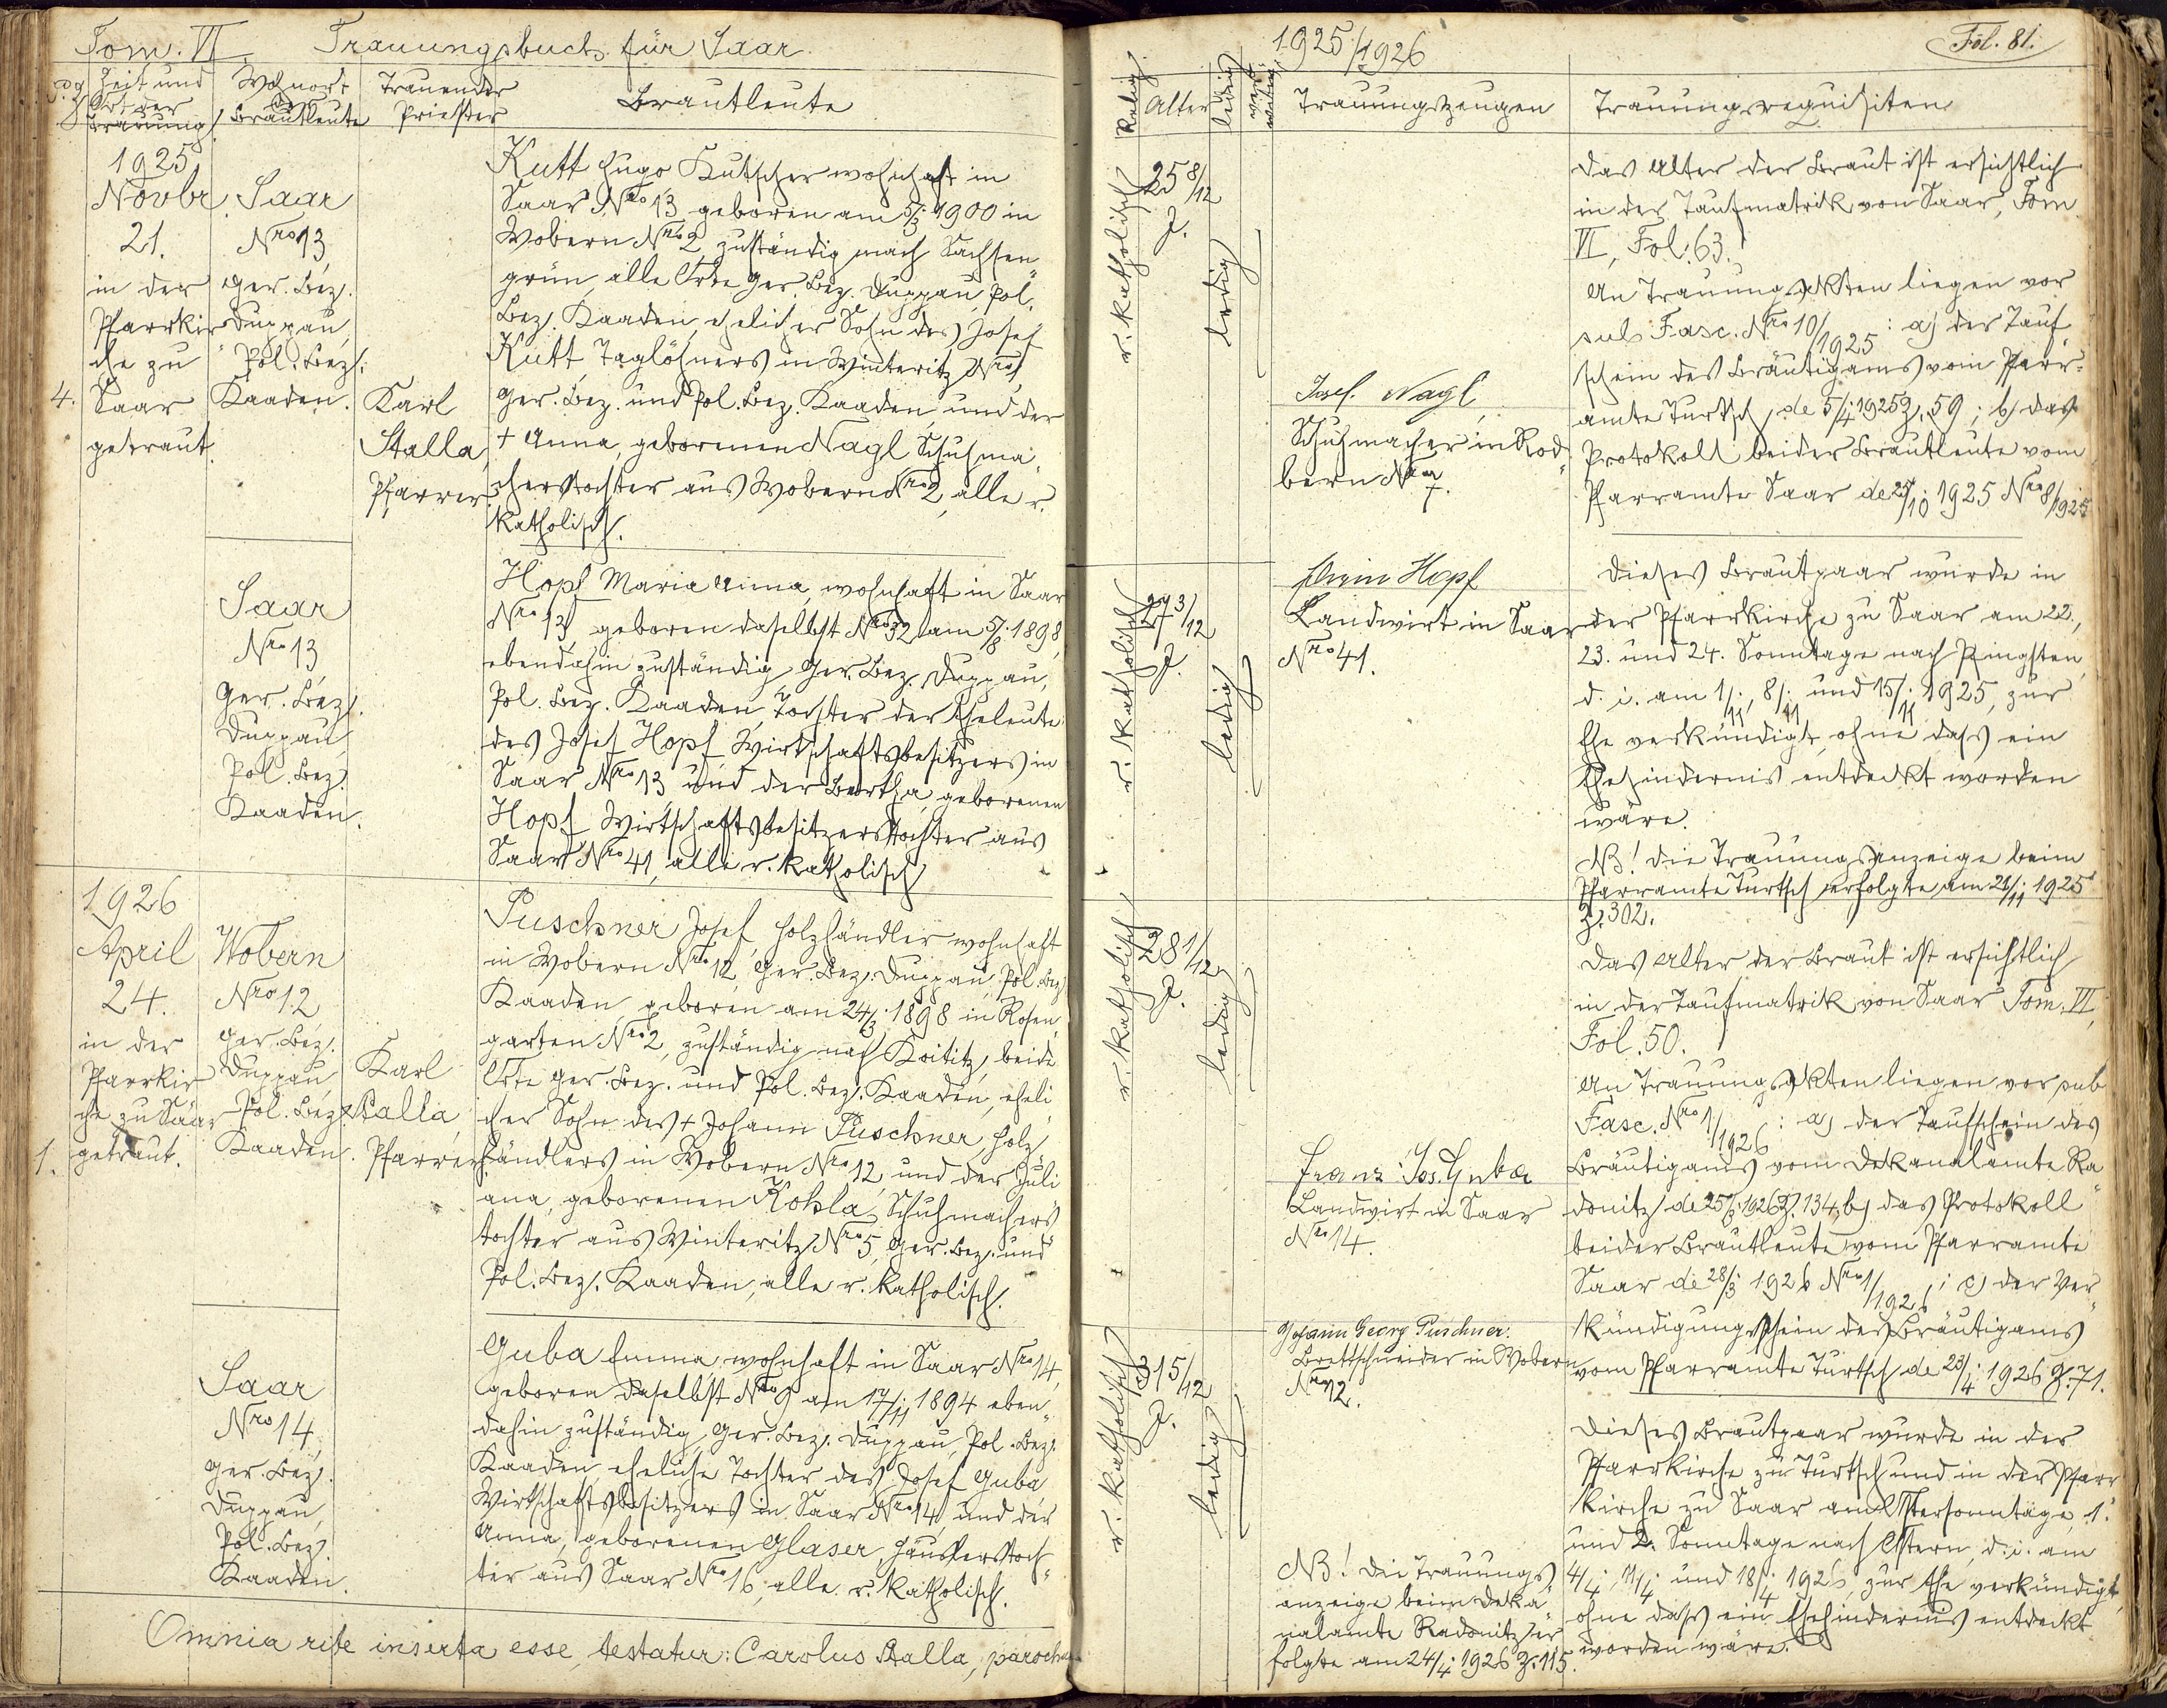 Tom. VI. Trauungsbuch für Saar.
Zeit und Ort der Trauung
Wohnort der Brautleute
Trauender Priester
Brautleute
4.
1925
Novbr.
21.
in der
Pfarrkir-
che zu
Saar
getraut.
Saar
Nro 13
Ger. Bez.
Duppau,
Pol. Bez.
Kaaden.
Karl
Stalla,
Pfarrer.
Kutt Hugo Kutscher wohnhaft in
Saar Nro 13 geboren am 5/3. 1900 in
Wobern Nro 2, zuständig nach Sachsen-
grün, alle Orte Ger. Bez. Duppau, Pol.
Bez. Kaaden, ehelicher Sohn des Josef
Kutt, Taglöhners in Winteritz Nro
Ger. Bez. und Pol. Bez. Kaaden, und der
† Anna, geborenen Nagl, Schuhma-
cherstochter aus Wobern Nro 2, alle r.
katholisch.
Saar
Nro 13
Ger. Bez.
Duppau,
Pol. Bez.
Kaaden.
Hopf Maria Anna, wohnhaft in Saar
Nro 13, geboren daselbst Nro 32 am 5/8. 1898,
ebendahin zuständig, Ger. Bez. Duppau,
Pol. Bez. Kaaden, Tochter der Eheleute
des Josef Hopf, Wirtschaftsbesitzers in
Saar Nro 13 und der Bertha, geborenen
Hopf, Wirtschaftsbesitzerstochter aus
Saar Nro 41, alle r. katholisch.
1.
1926
April
24.
in der
Pfarrkir-
che zu Saar
getraut.
Wobern
Nro 12
Ger. Bez.
Duppau
Pol. Bez.
Kaaden.
Karl
Stalla,
Pfarrer.
Puschner Josef, Holzhändler wohnhaft
in Wobern Nro 12, Ger. Bez. Duppau, Pol. Bez.
Kaaden, geboren am 24/3. 1898 in Rosen-
garten Nro 2, zuständig nach Koititz, beide
Orte Ger. Bez. und Pol. Bez. Kaaden, eheli-
cher Sohn des † Johann Puschner, Holz-
händlers in Wobern Nro 12, und der Juli-
ana, geborenen Kohla, Schuhmachers-
tochter aus Winteritz Nro 5, Ger. Bez. und
Pol. Bez. Kaaden, alle r. katholisch.
Saar
Nro 14,
Ger. Bez.
Duppau,
Pol. Bez.
Kaaden.
Guba Emma, wohnhaft in Saar Nro 14,
geboren daselbst Nro 9 am 17/11. 1894 eben-
dahin zuständig, Ger. Bez. Duppau, Pol. Bez.
Kaaden, eheliche Tochter des Josef Guba
Wirtschaftsbesitzers in Saar Nro 14, und der
Anna, geborenen Glaser, Häuslerstoch-
ter aus Saar Nro 16, alle r. katholisch.
Omnia rite inserta esse, testatur: Carolus Stalla, parochus
1925/1926
Fol. 81.
Relig.
Alter
ledig
Trauungszeugen
Trauungsrequisiten
r. katholisch
25 8/12
J.
ledig
Josef Nagl,
Schuhmacher in Rod-
bern Nro 7.
Das Alter der Braut ist ersichtlich
in der Taufmatrik von Saar, Tom
VI, Fol. 63.
An Trauungsakten liegen vor
sub Fasc. Nro 10/1925: a) der Tauf-
schein des Bräutigams vom Pfarr-
amte Turtsch, de 5/4. 1925 Z. 59; b) das
Protokoll beider Brautleute vom
Pfarramte Saar de 25/10. 1925 Nro 8/1925
r. katholisch
27 3/12
J.
ledig
Hopf
Landwirt in Saar
Nro 41.
Dieses Brautpaar wurde in
der Pfarrkirche zu Saar am 22.,
23. und 24. Sonntage nach Pfingsten,
d. i. am 1/11., 8/11. und 15/11. 1925, zur
Ehe verkündigt, ohne dass ein
Ehehindernis entdeckt worden
wäre.
NB! Die Trauungsanzeige beim
Pfarramte Turtsch erfolgte am 21/11. 1925
Z. 302.
r. katholisch
28 1/12
J.
ledig
Franz Jos. Guba
Landwirt in Saar
Nro 14.
Das Alter der Braut ist ersichtlich
in der Taufmatrik von Saar Tom. VI,
Fol. 50.
An Trauungsakten liegen vor sub
Fasc. Nro 1/1926: a) der Taufschein des
Bräutigams vom Dekanalamte Ra-
donitz de 25/3. 1926 Z. 134, b) das Protokoll
beider Brautleute vom Pfarramte
Saar de 28/3. 1926 Nro 1/1926; c) der Ver-
kündigungsschein des Bräutigams
vom Pfarramte Turtsch de 23/4. 1926 Z. 71.
r. katholisch
31 5/12
J.
ledig
Johann Georg Puschner.
Brettschneider in Wobern
Nro 12.
Dieses Brautpaar wurde in der
Pfarrkirche zu Turtsch und in der Pfarr-
kirche zu Saar am Ostersonntage, 1.
und 2. Sonntage nach Ostern, d. i. am
4/4., 11/4. und 18/4. 1926, zur Ehe verkündigt,
ohne dass ein Ehehindernis entdeckt
worden wäre.
NB! Die Trauungs-
anzeige beim Deka-
nalamte Radonitz er-
folgte am 24/4. 1926 Z. 115.